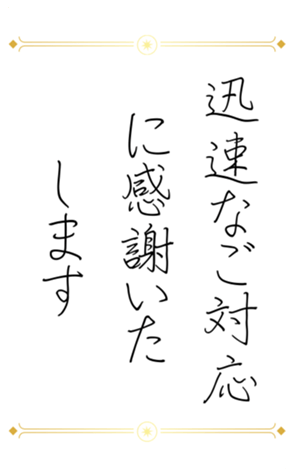 迅速なご対応
に感謝いた
します